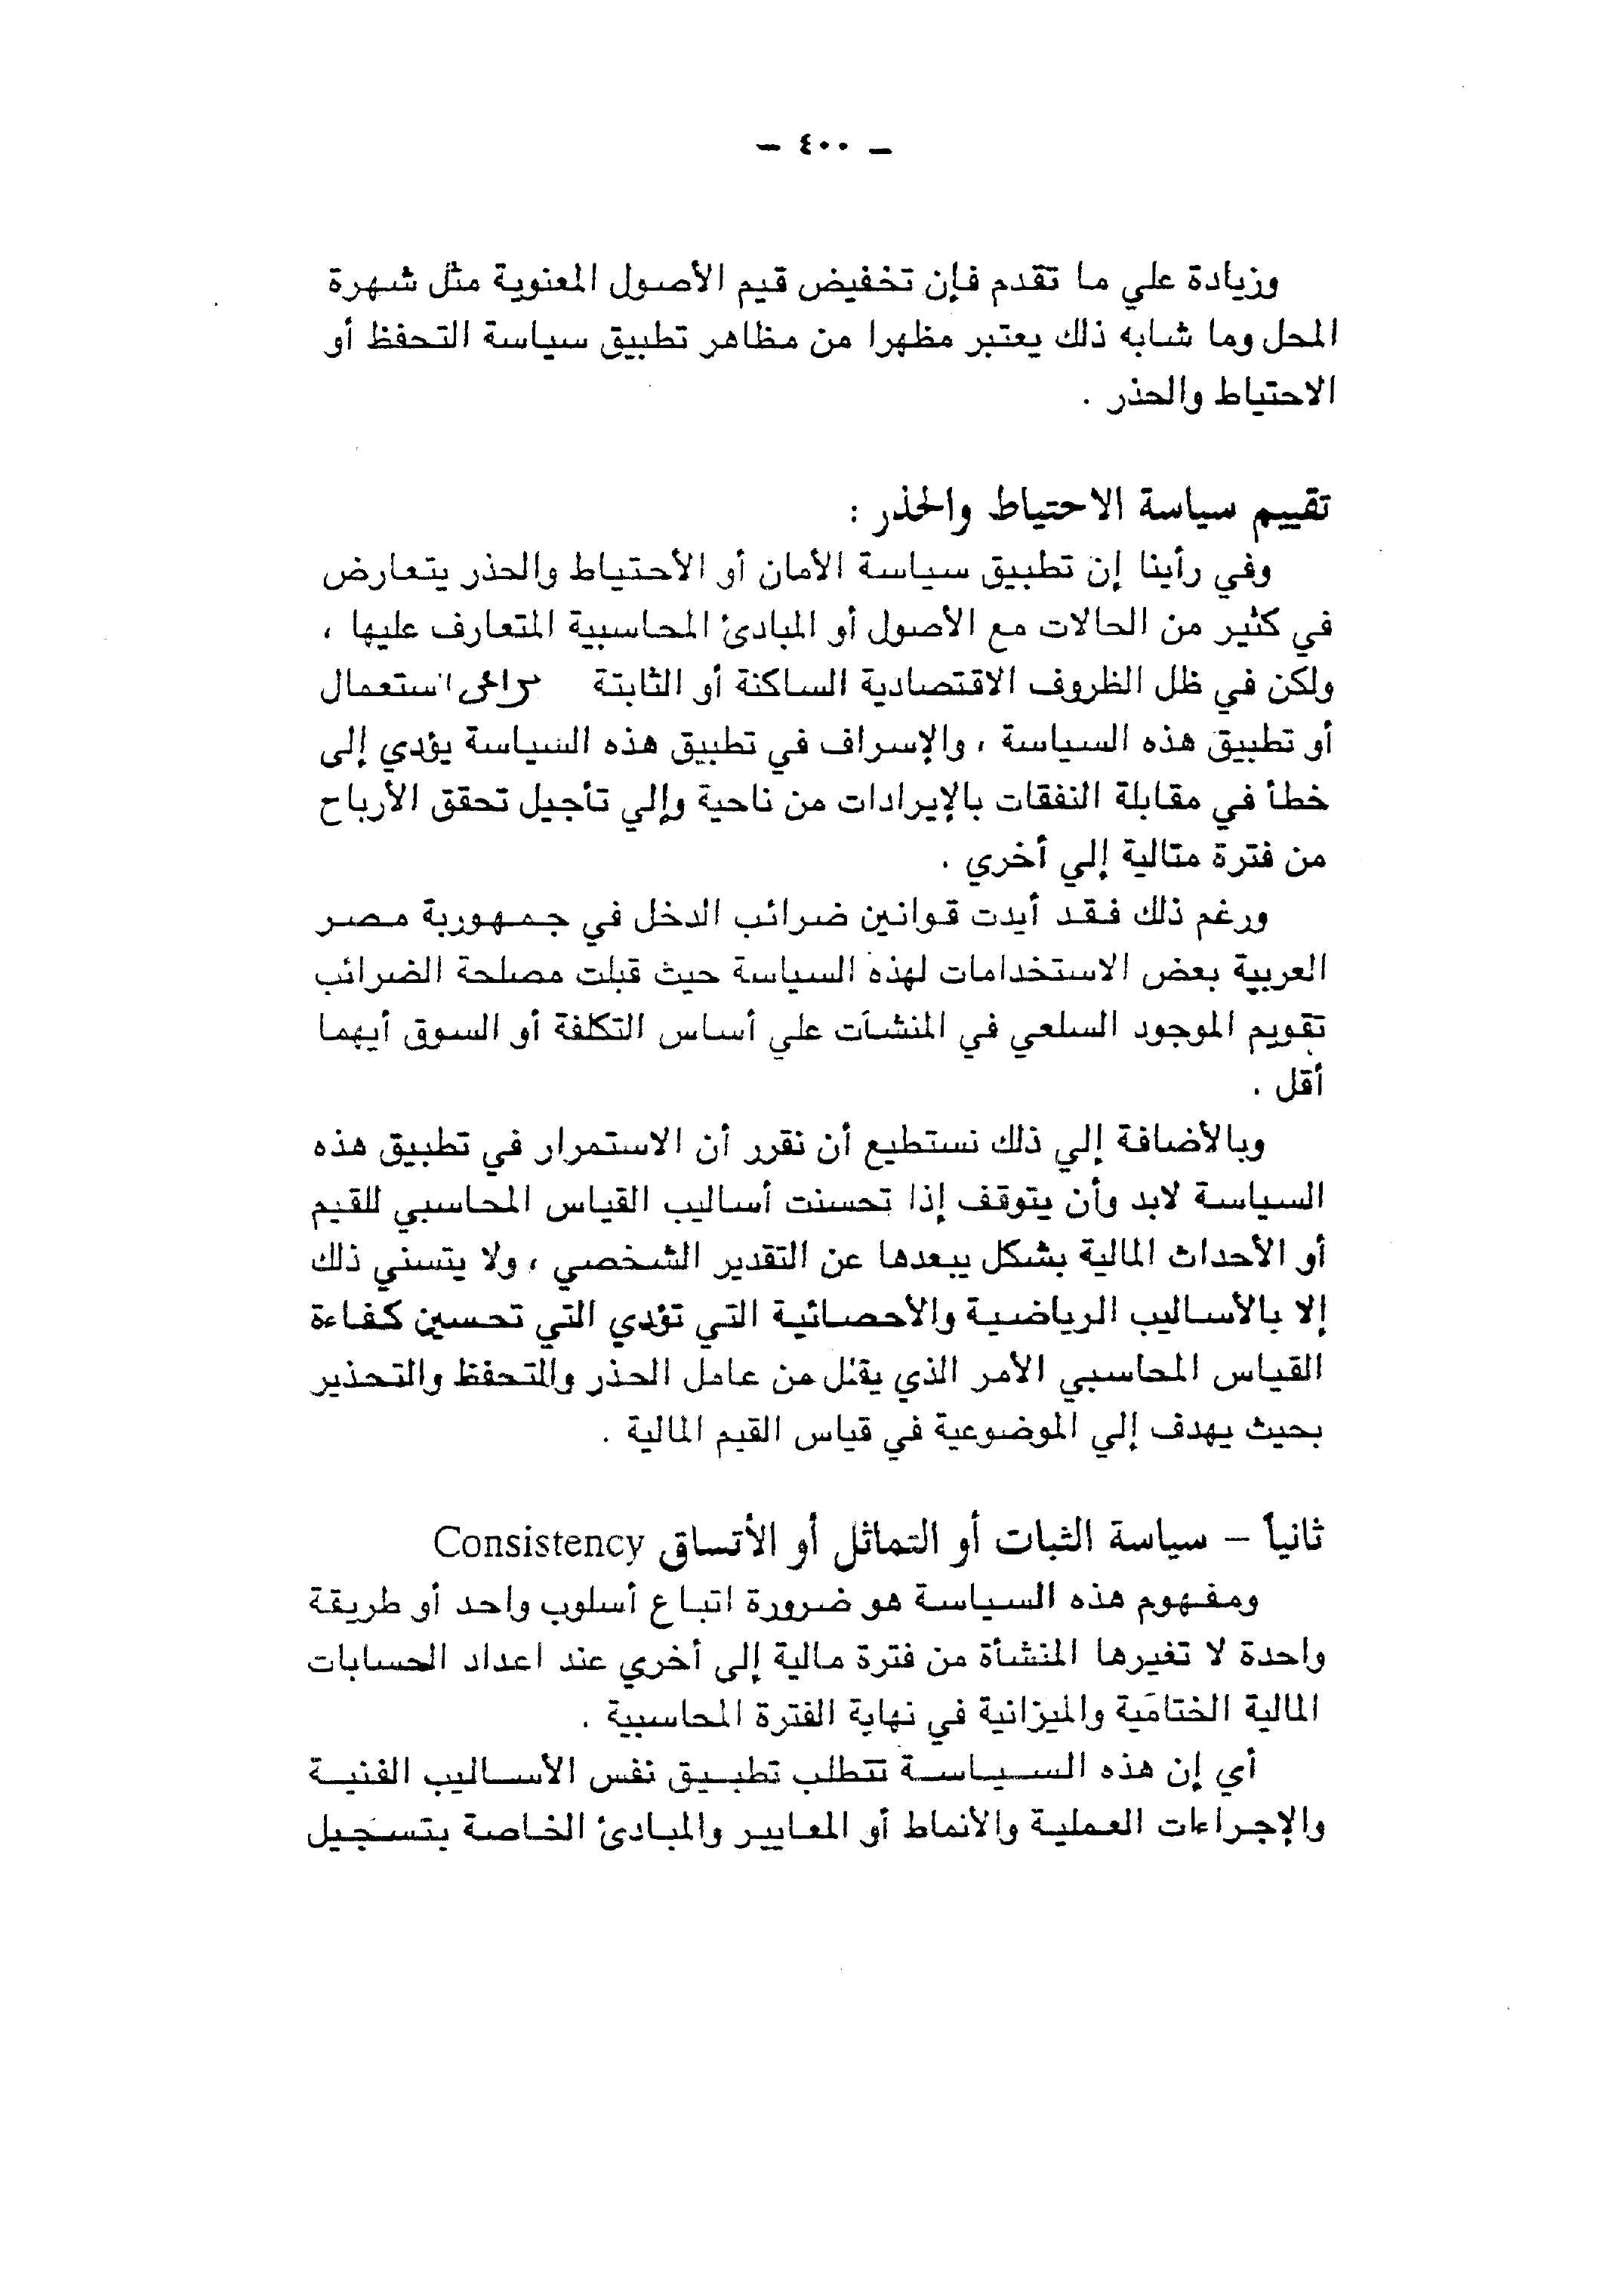 – ٤٠٠ –
وزيادة علي ما تقدم فإن تخفيض قيم الأصول المعنوية مثل شهرة
المحل وما شابه ذلك يعتبر مظهرا من مظاهر تطبيق سياسة التحفظ أو
الاحتياط والحذر .
تقييم سياسة الاحتياط والحذر :
وفي رأينا إن تطبيق سياسة الأمان أو الأحتياط والحذر يتعارض
في كثير من الحالات مع الأصول أو المبادئ المحاسبية المتعارف عليها ،
ولكن في ظل الظروف الاقتصادية الساكنة أو الثابتة استعمال
أو تطبيق هذه السياسة ، والإسراف في تطبيق هذه السياسة يؤدي إلى
خطأ في مقابلة النفقات بالإيرادات من ناحية وإلي تأجيل تحقق الأرباح
من فترة متالية إلي أخري .
ورغم ذلك فقد أيدت قوانين ضرائب الدخل في جمهورية مصر
العربية بعض الاستخدامات لهذه السياسة حيث قبلت مصلحة الضرائب
تقويم الموجود السلعي في المنشآت علي أساس التكلفة أو السوق أيهما
أقل .
وبالأضافة إلي ذلك نستطيع أن نقرر أن الاستمرار في تطبيق هذه
السياسة لابد وأن يتوقف إذا تحسنت أساليب القياس المحاسبي للقيم
أو الأحداث المالية بشكل يبعدها عن التقدير الشخصي ، ولا يتسني ذلك
إلا بالأساليب الرياضية والأحصائية التي تؤدي التي تحسين كفاءة
القياس المحاسبي الأمر الذي يقلل من عامل الحذر والتحفظ والتحذير
بحيث يهدف إلي الموضوعية في قياس القيم المالية .
ثانياً – سياسة الثبات أو التماثل أو الأتساق Consistency
ومفهوم هذه السياسة هو ضرورة اتباع أسلوب واحد أو طريقة
واحدة لا تغيرها المنشأة من فترة مالية إلى أخري عند اعداد الحسابات
المالية الختامية والميزانية في نهاية الفترة المحاسبية .
أي إن هذه السياسة تتطلب تطبيق نفس الأساليب الفنية
والإجراءات العملية والأنماط أو المعايير والمبادئ الخاصة بتسجيل